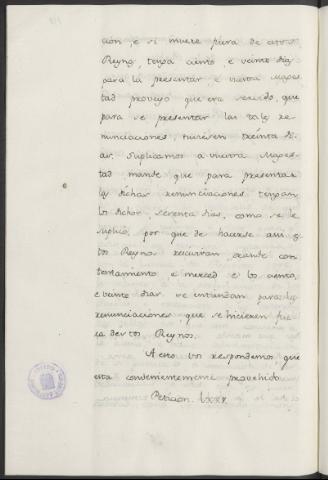 cion, e si fuere fuera de estos
Reynos, tenga ciento, e veinte dias
para la presentar, e vuestra Mages-
tad proveyo que era servido, que
para se presentar las tales re-
nunciaciones, tuviesen treinta di-
as. Suplicamos a vuestra Mages-
tad mande que para presentar
las dichas renunciaciones tengan
los dichos, sesenta dias, como se le
suplicó, por que de hacerse assi es-
tos Reynos reciviran, grande con-
tentamiento e merced e los ciento,
e veinte dias se entiendan para las
renunciaciones que se hicieren fue-
ra destos Reynos.
A esto vos respondemos, que
esta convenientemente provehido.
Peticion. LXXX.